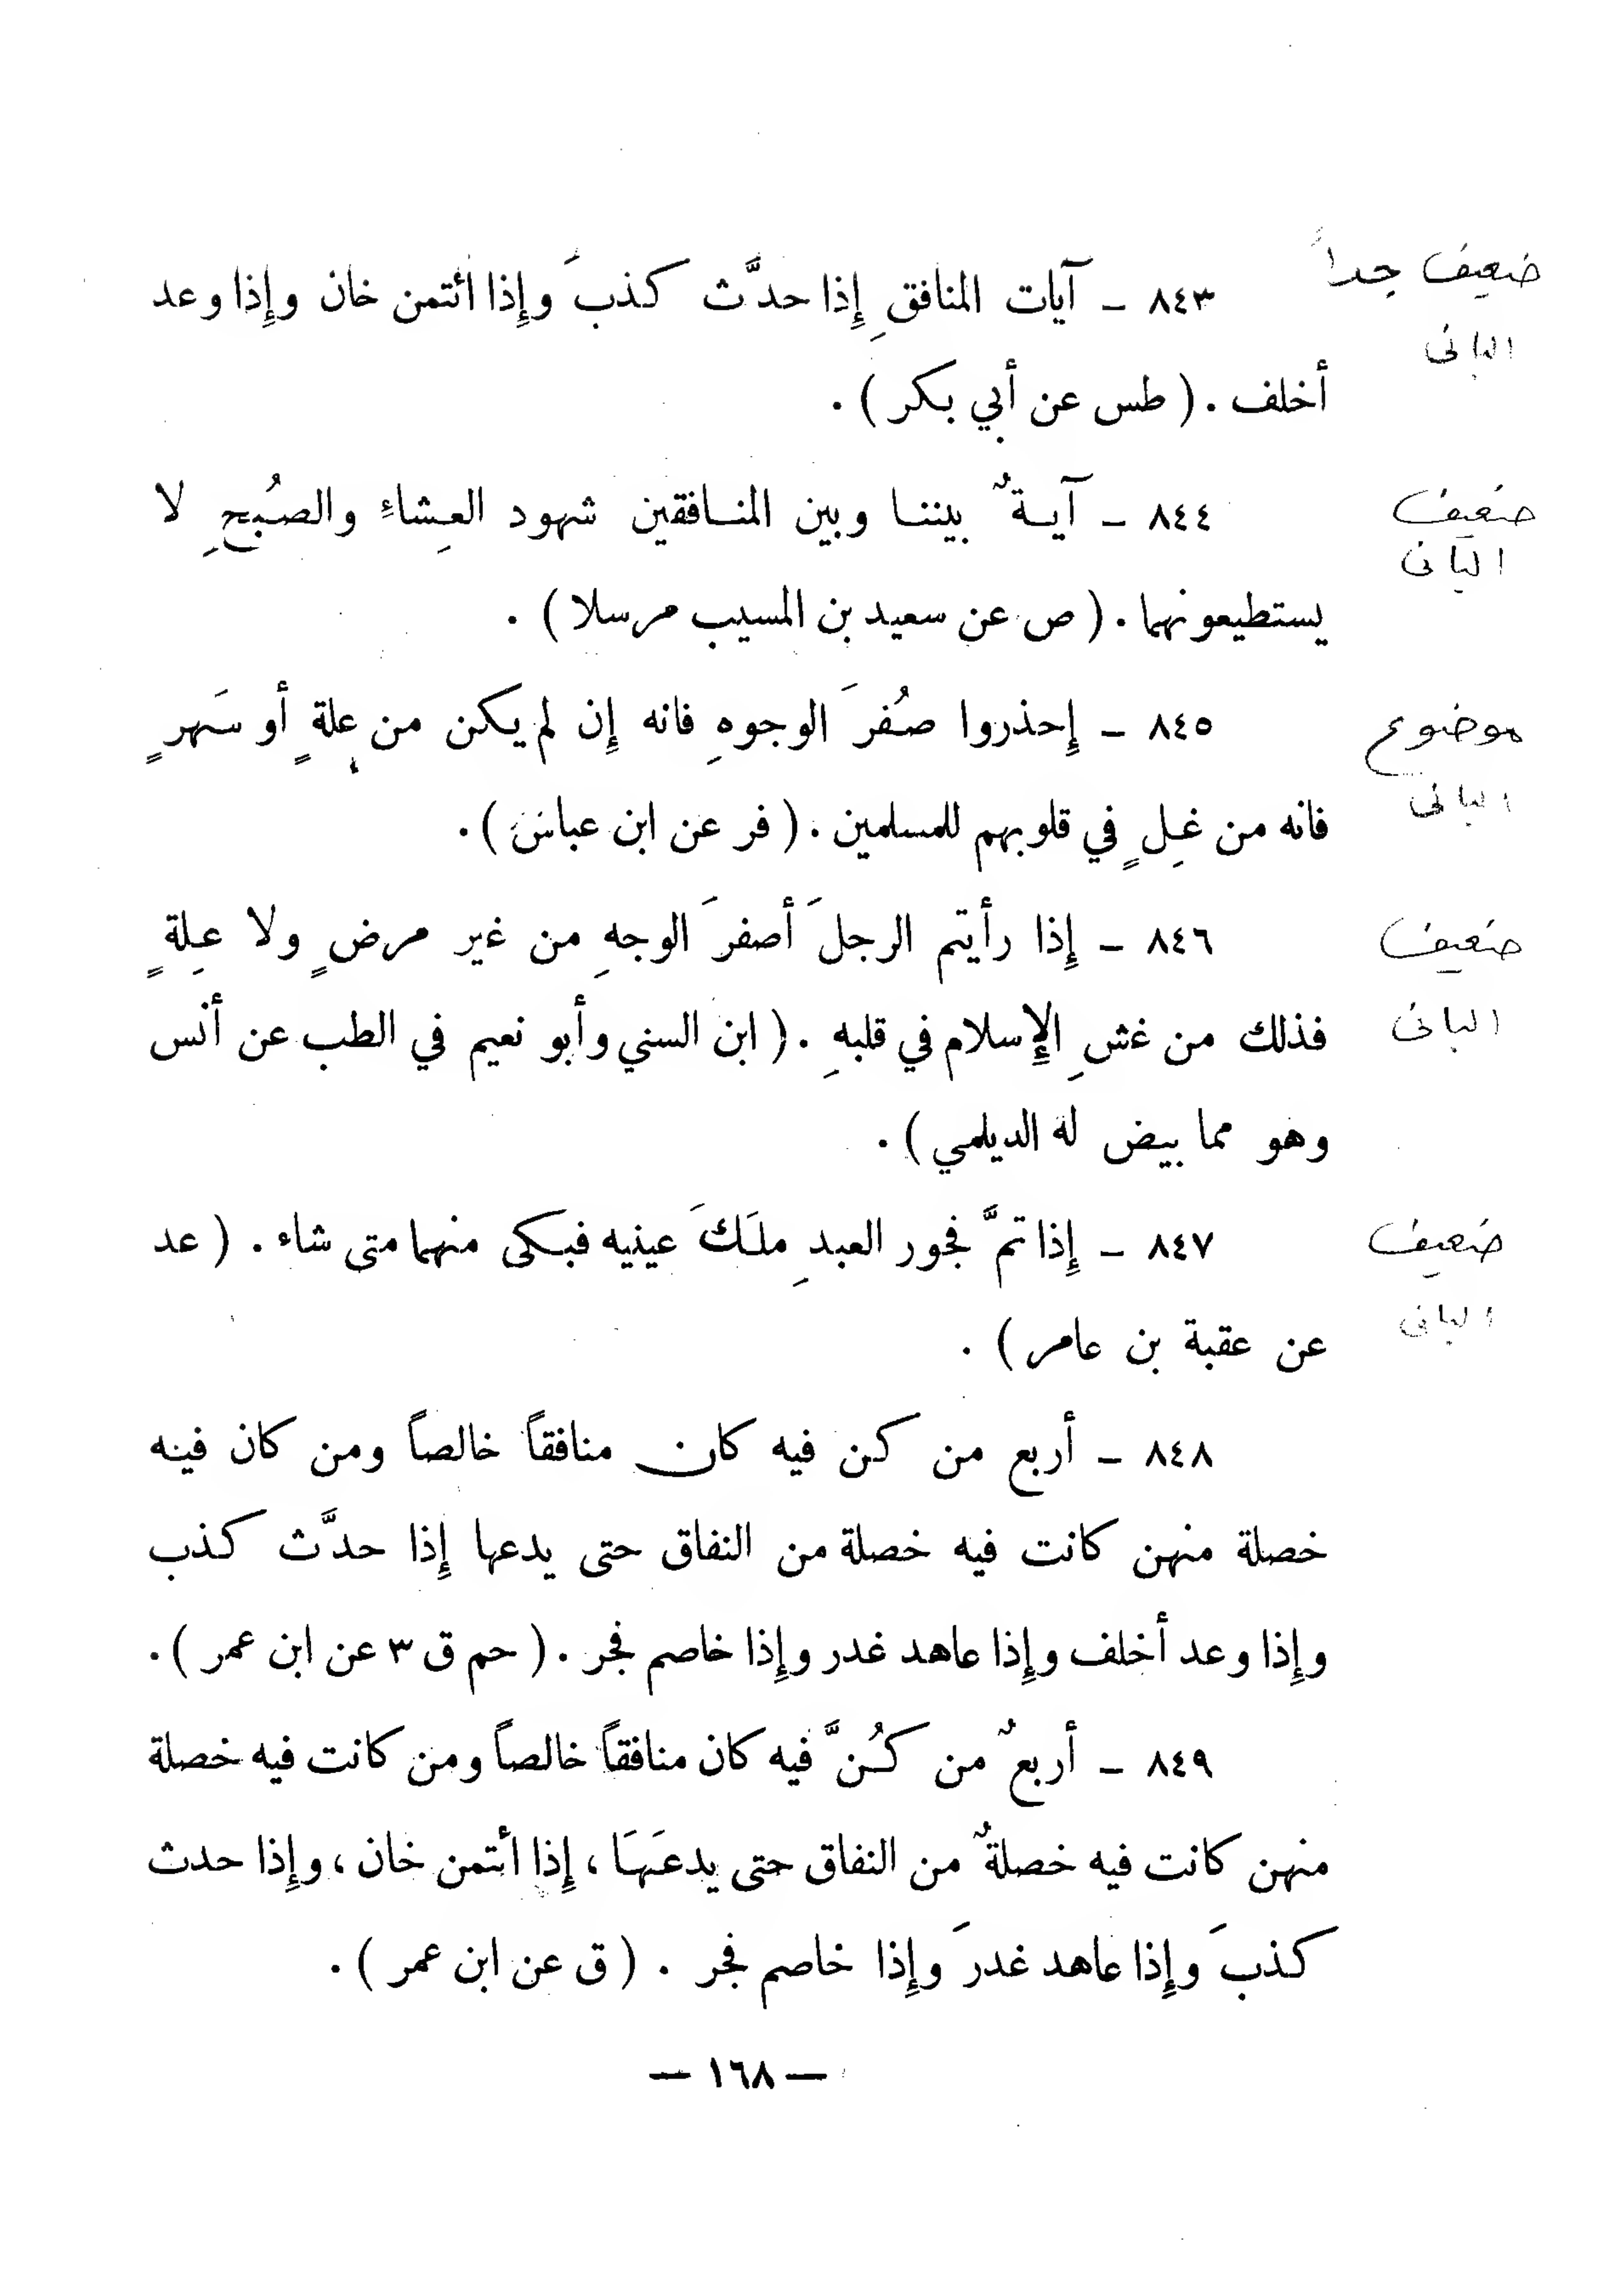 ضعيف جداً
٨٤٣ – آيات المنافقِ إِذا حدَّث كذبَ وإِذا ائتمن خان وإِذا وعد
البانى
أخلف . ( طس عن أبي بكر ) .
ضعيف
٨٤٤ – آيـةٌ بيننـا وبين المنـافقين شهود العِشاءِ والصُبحِ لا
البانى
يستطيعونهما . ( ص عن سعيد بن المسيب مرسلا ) .
موضوع
٨٤٥ – إِحذروا صُفرَ الوجوهِ فانه إِن لم يكن من عِلةٍ أو سَهرٍ
البانى
فانه من غِلٍ في قلوبهم للمسلمين . ( فر عن ابن عباس ) .
ضعيف
٨٤٦ – إِذا رأيتم الرجلَ أصفرَ الوجهِ من غير مرضٍ ولا عِلةٍ
البانى
فذلك من غشِ الإِسلام في قلبهِ . ( ابن السني وأبو نعيم في الطب عن أنس
وهو مما بيض له الديلمي ) .
ضعيف
٨٤٧ – إِذا تمَّ فجور العبدِ ملَكَ عينيه فبكى منهما متى شاء . ( عد
البانى
عن عقبة بن عامر ) .
٨٤٨ – أربع من كن فيه كان منافقاً خالصاً ومن كان فيه
خصلة منهن كانت فيه خصلة من النفاق حتى يدعها إِذا حدَّث كذب
وإِذا وعد أخلف وإِذا عاهد غدر وإِذا خاصم فجر . ( حم ق ٣ عن ابن عمر ) .
٨٤٩ – أربعٌ من كُنَّ فيه كان منافقاً خالصاً ومن كانت فيه خصلة
منهن كانت فيه خصلةٌ من النفاق حتى يدعَهَا ، إِذا أئتمن خان ، وإِذا حدث
كذبَ وإِذا عاهد غدرَ وإِذا خاصم فجر . ( ق عن ابن عمر ) .
— ١٦٨ —